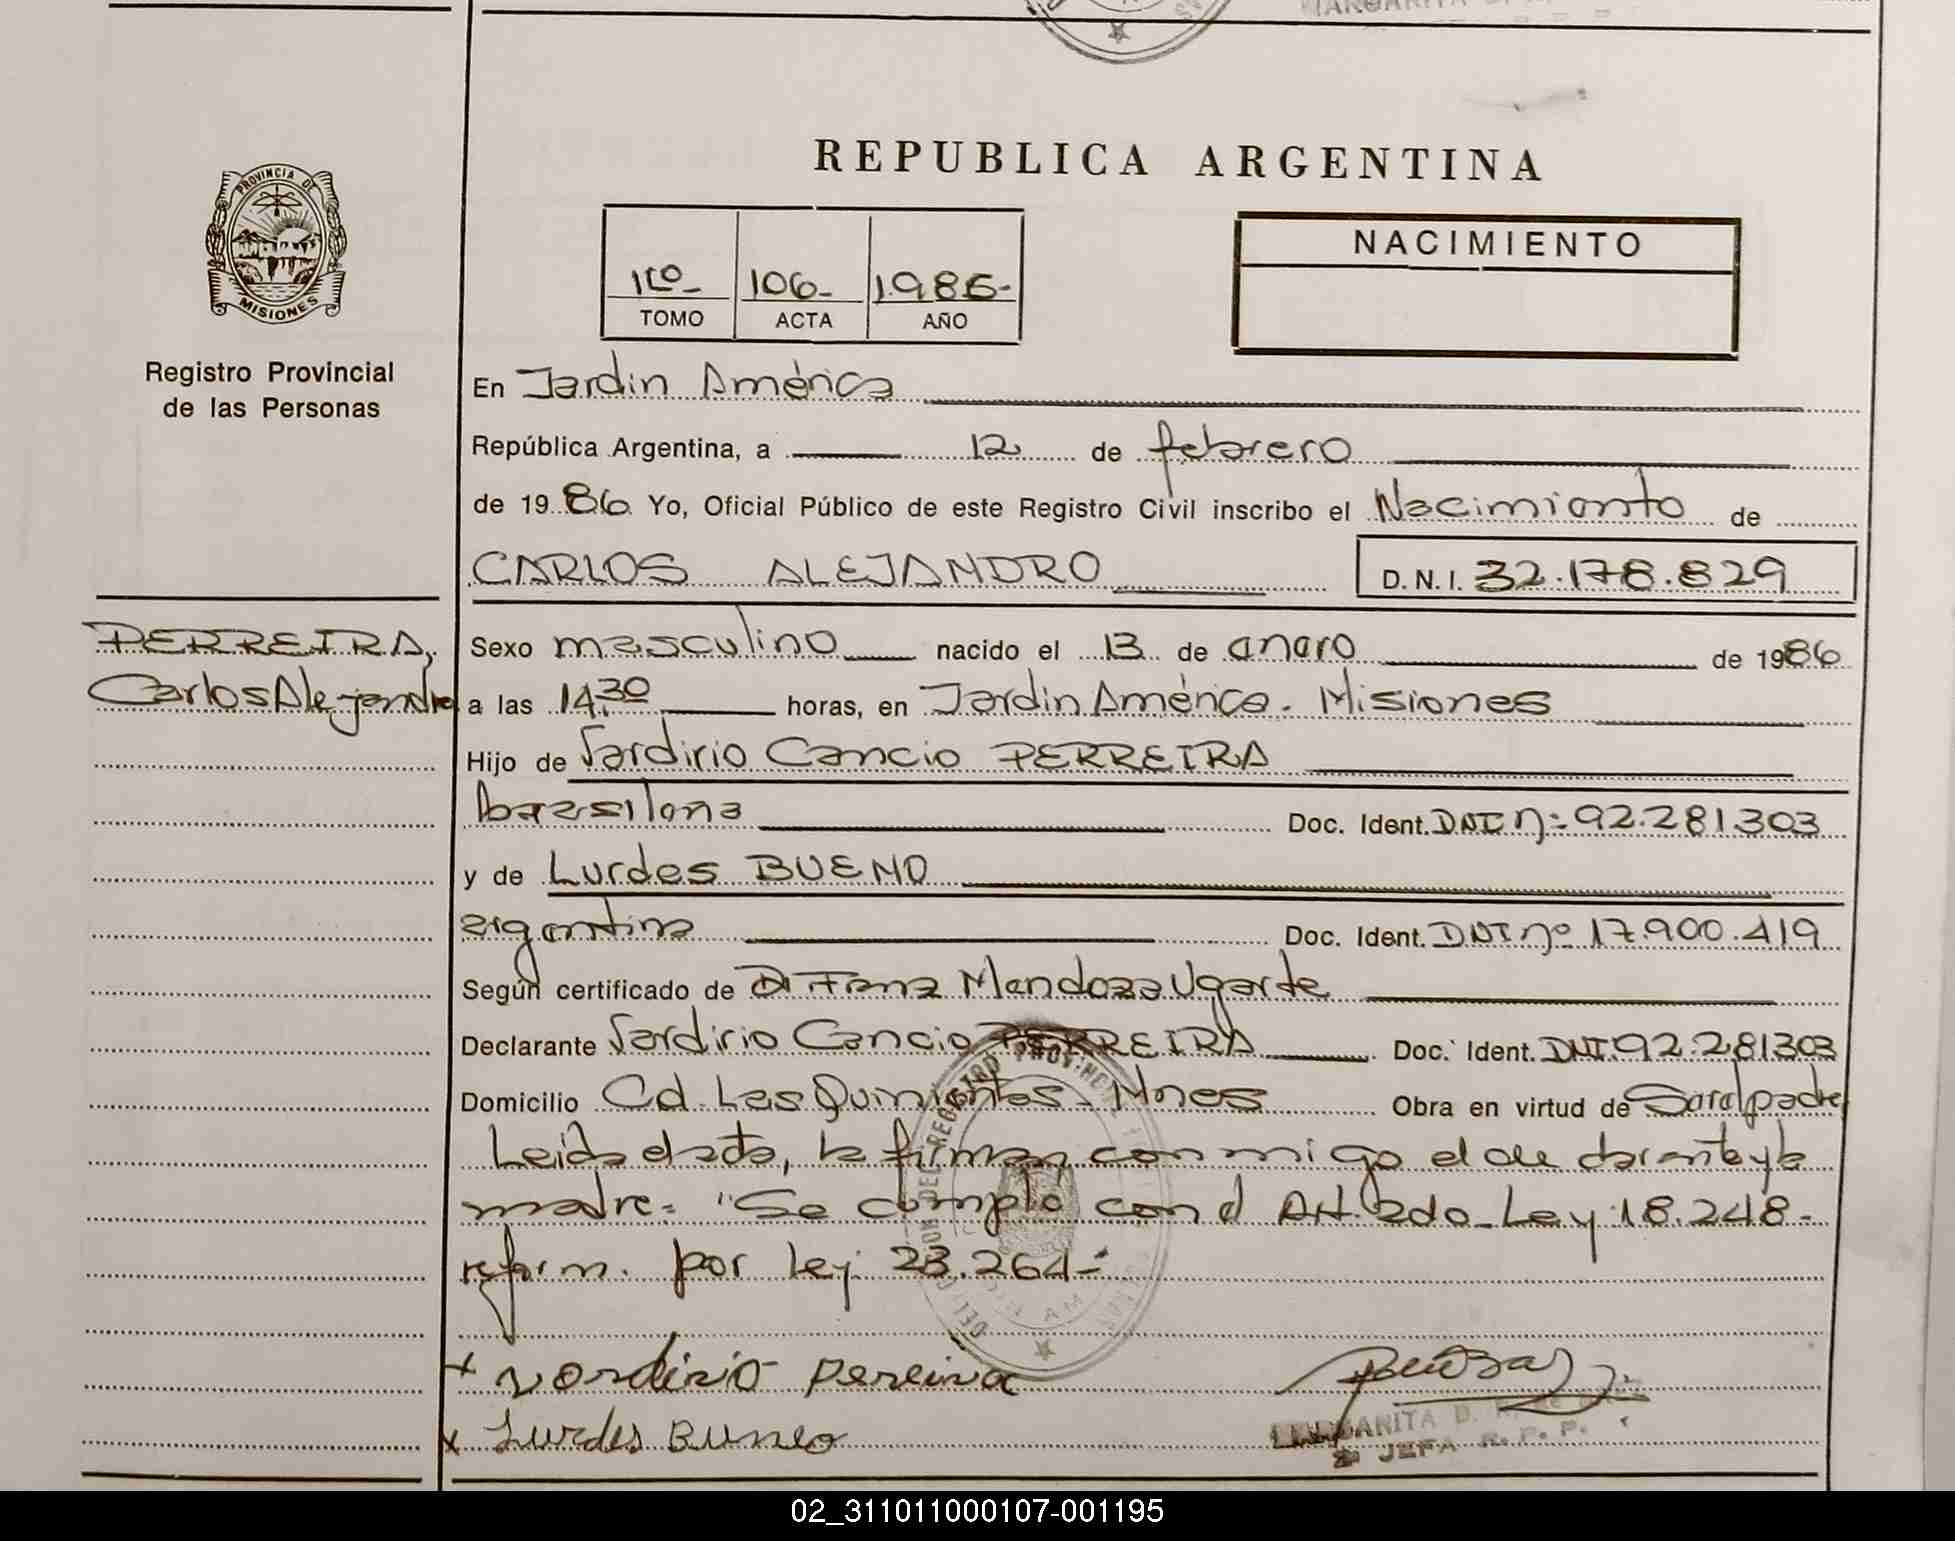 REPUBLICA ARGENTINA
PROVINCIA DE
MISIONES
Registro Provincial
de las Personas
1ro- 106- 1.986-
TOMO ACTA AÑO
NACIMIENTO
En Jardin América
República Argentina, a 12 de febrero
de 1986 Yo, Oficial Público de este Registro Civil inscribo el Nacimiento de
CARLOS ALEJANDRO D.N.I. 32.178.829
PERREIRA,
Carlos Alejandro
Sexo masculino nacido el 13 de enero de 1986
a las 14,30 horas, en Jardin América. Misiones
Hijo de Vardirio Cancio PERREIRA
brasilena Doc. Ident. DNI nº 92.281303
y de Lurdes BUENO
argentina Doc. Ident. DNI nº 17.900.419
Según certificado de Dr Franz Mendoza Ugarte
Declarante Vardirio Cancio PERREIRA Doc. Ident. DNI 92.281303
Domicilio Cd. Las Quinientas - Mnes Obra en virtud de Ser el padre
Leida el acta, la firman conmigo el declarante y la
madre= "Se cumple con el Art. 2do- Ley 18.248-
reform. por ley 23.264-
x Vordirio Pereira
x Lurdes Bueno
JEFA R.P.P.
02_311011000107-001195